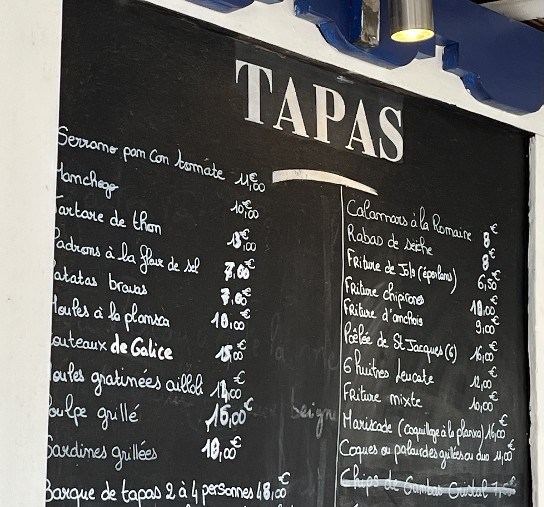 TAPAS
Serrano pan con tomate 11,00€
Manchego 10,00€
artare de thon 15,00€
adrons à la fleur de sel 7,00€
atatas bravas 7,00€
oules à la plancha 10,00€
outeaux de Galice 15,00€
oules gratinées aïlloli
oulpe grillé 16,00€
Sardines grillées 10,00€
Barque de tapas 2 à 4 personnes 48,00€
Calamars à la Romaine 8€
Rabas de seiche 8€
Friture de Jols (éperlans) 6,50€
Friture chipirones 10,00€
Friture d'anchois 9,00€
Poêlée de St Jacques (6) 16,00€
6 huîtres leucate 12,00€
Friture mixte 10,00€
Mariscade (Coquillage à la planxa) 16,00€
Coques ou palourdes grillées ou duo 11,00€
Chips de Gambas Cristal
beigne